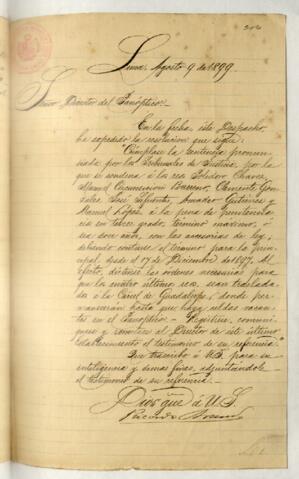 Lima, Agosto 9 de 1899.
Señor Director del Panóptico.
En la fecha, este Despacho,
ha expedido la resolución que sigue:
"Cúmplase la sentencia pronun-
ciada por los Tribunales de Justicia, por la
que se condena á los reos Chavez,
Manuel Circuncisión Barreno, Clemente Gon-
zales, José Sifuentes, Amador Gutierrez y
Manuel López, á la pena de penitencia-
ría en tercer grado, término máximo, ó
sea doce años, con las accesorias de ley,
debiendo contarse el término para la prin-
cipal, desde el 17 de Diciembre de 1897. Al
efecto, díctense las órdenes necesarias para
que los cuatro últimos reos, sean traslada-
dos á la Cárcel de Guadalupe, donde per-
manecerán hasta que haya celdas vacan-
tes en el Panóptico. Regístrese, comuní-
quese y remítase al Director de este último
establecimiento el testimonio de su referencia."
Que trascribo á US. para su
inteligencia y demas fines, adjuntándole
el testimonio de su referencia.
Dios gue. á US.
Ricardo